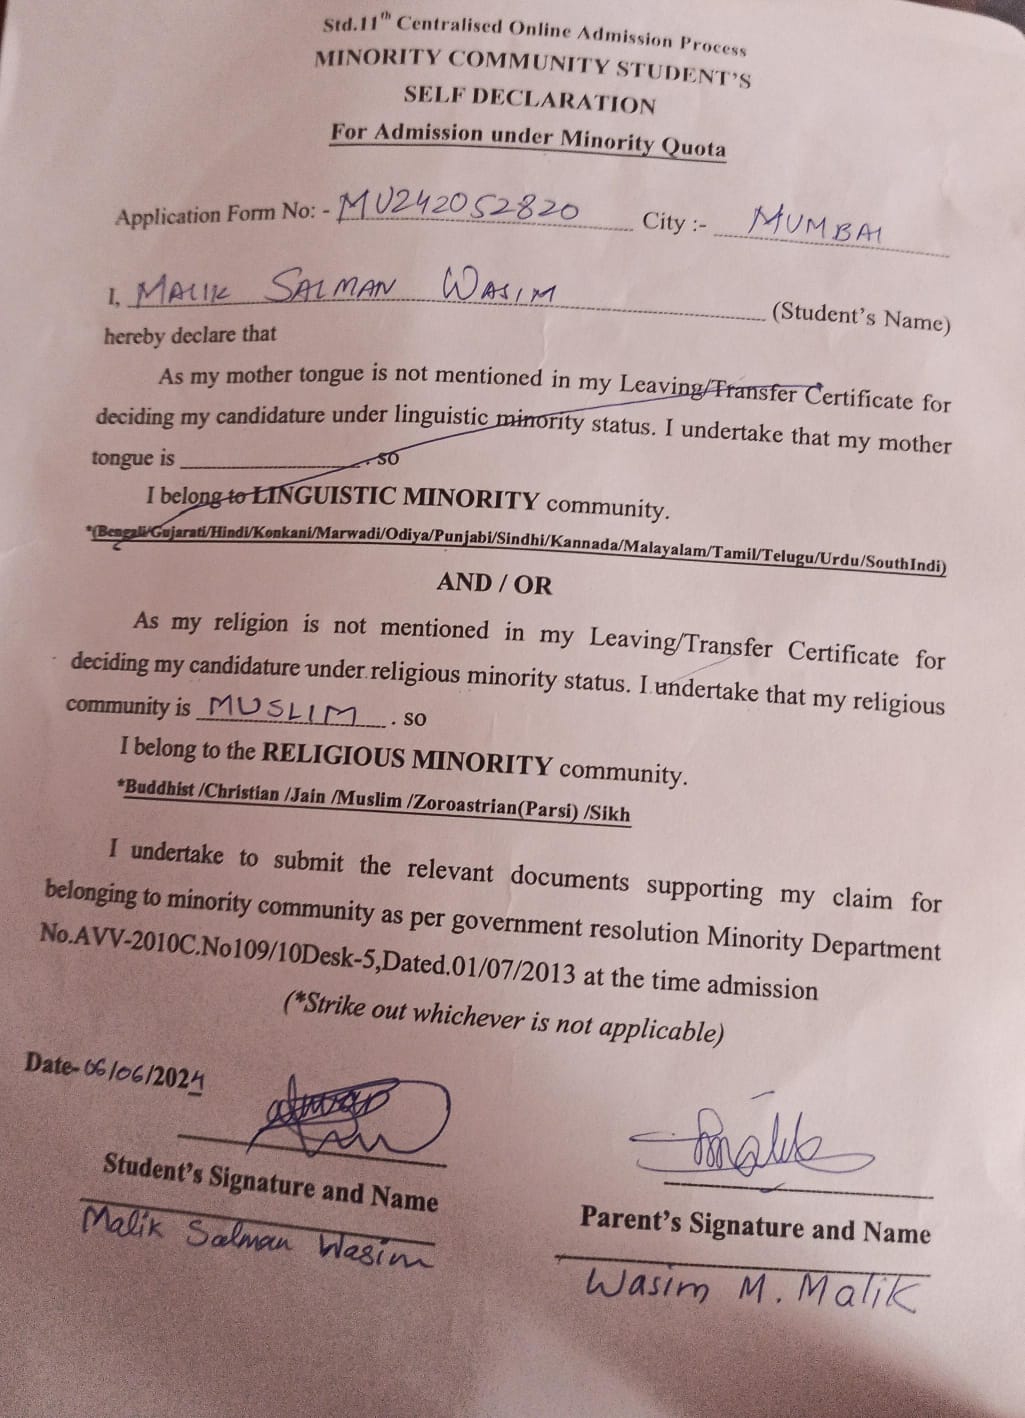 Std.11th Centralised Online Admission Process
MINORITY COMMUNITY STUDENT'S
SELF DECLARATION
For Admission under Minority Quota
Application Form No: - MU242052820 City :- MUMBAI
I, MALIK SALMAN WASIM (Student's Name)
hereby declare that
As my mother tongue is not mentioned in my Leaving/Transfer Certificate for
deciding my candidature under linguistic minority status. I undertake that my mother
tongue is ________________. so
I belong to LINGUISTIC MINORITY community.
*(Bengali/Gujarati/Hindi/Konkani/Marwadi/Odiya/Punjabi/Sindhi/Kannada/Malayalam/Tamil/Telugu/Urdu/SouthIndi)
AND / OR
As my religion is not mentioned in my Leaving/Transfer Certificate for
deciding my candidature under religious minority status. I undertake that my religious
community is MUSLIM . so
I belong to the RELIGIOUS MINORITY community.
*Buddhist /Christian /Jain /Muslim /Zoroastrian(Parsi) /Sikh
I undertake to submit the relevant documents supporting my claim for
belonging to minority community as per government resolution Minority Department
No.AVV-2010C.No109/10Desk-5,Dated.01/07/2013 at the time admission
(*Strike out whichever is not applicable)
Date-06/06/2024
Student's Signature and Name
Malik Salman Wasim
Parent's Signature and Name
Wasim M. Malik